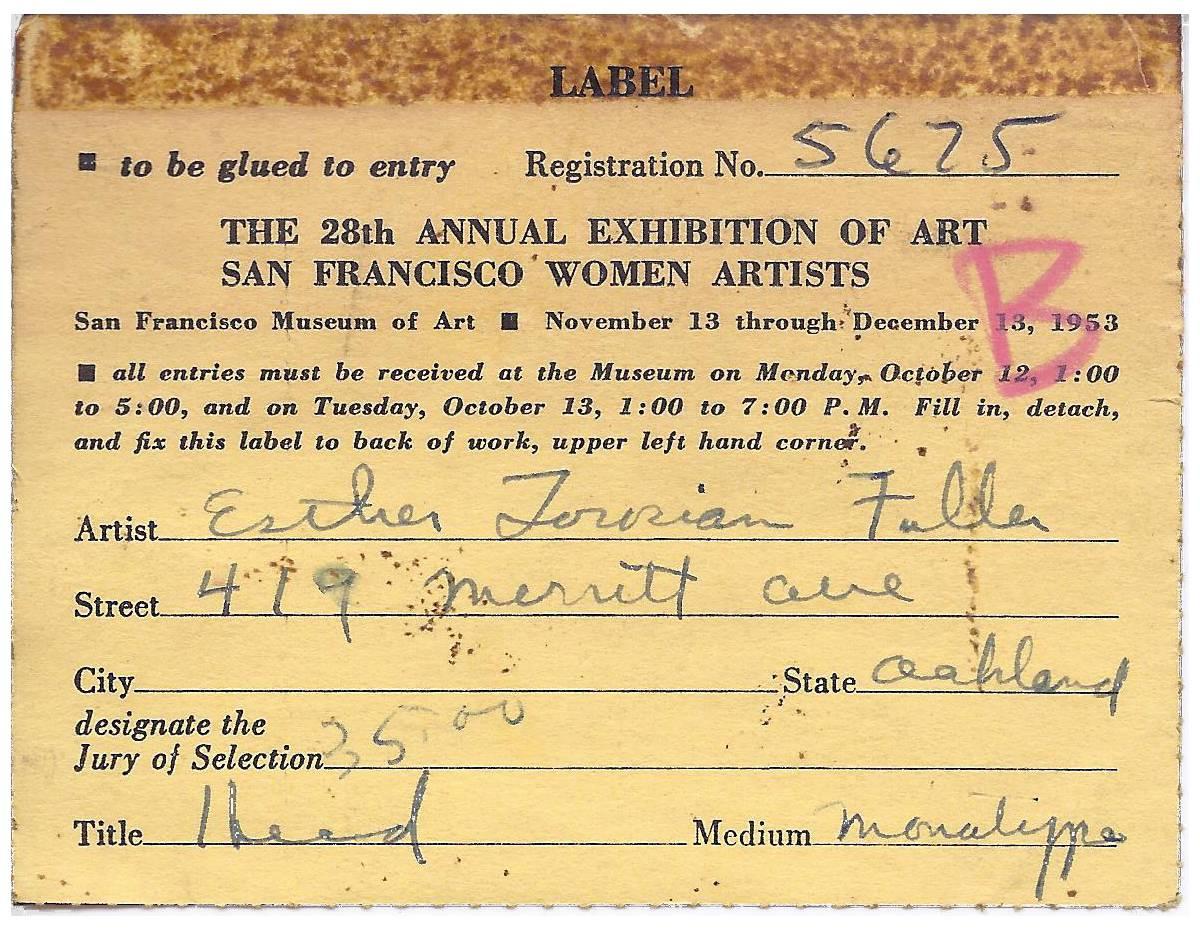 LABEL
■ to be glued to entry Registration No. 5675
THE 28th ANNUAL EXHIBITION OF ART
SAN FRANCISCO WOMEN ARTISTS
B
San Francisco Museum of Art ■ November 13 through December 13, 1953
■ all entries must be received at the Museum on Monday, October 12, 1:00
to 5:00, and on Tuesday, October 13, 1:00 to 7:00 P.M. Fill in, detach,
and fix this label to back of work, upper left hand corner.
Artist Esther Torosian Fuller
Street 419 Merritt ave
City State Oakland
designate the
Jury of Selection 35.00
Title Head Medium Monotype